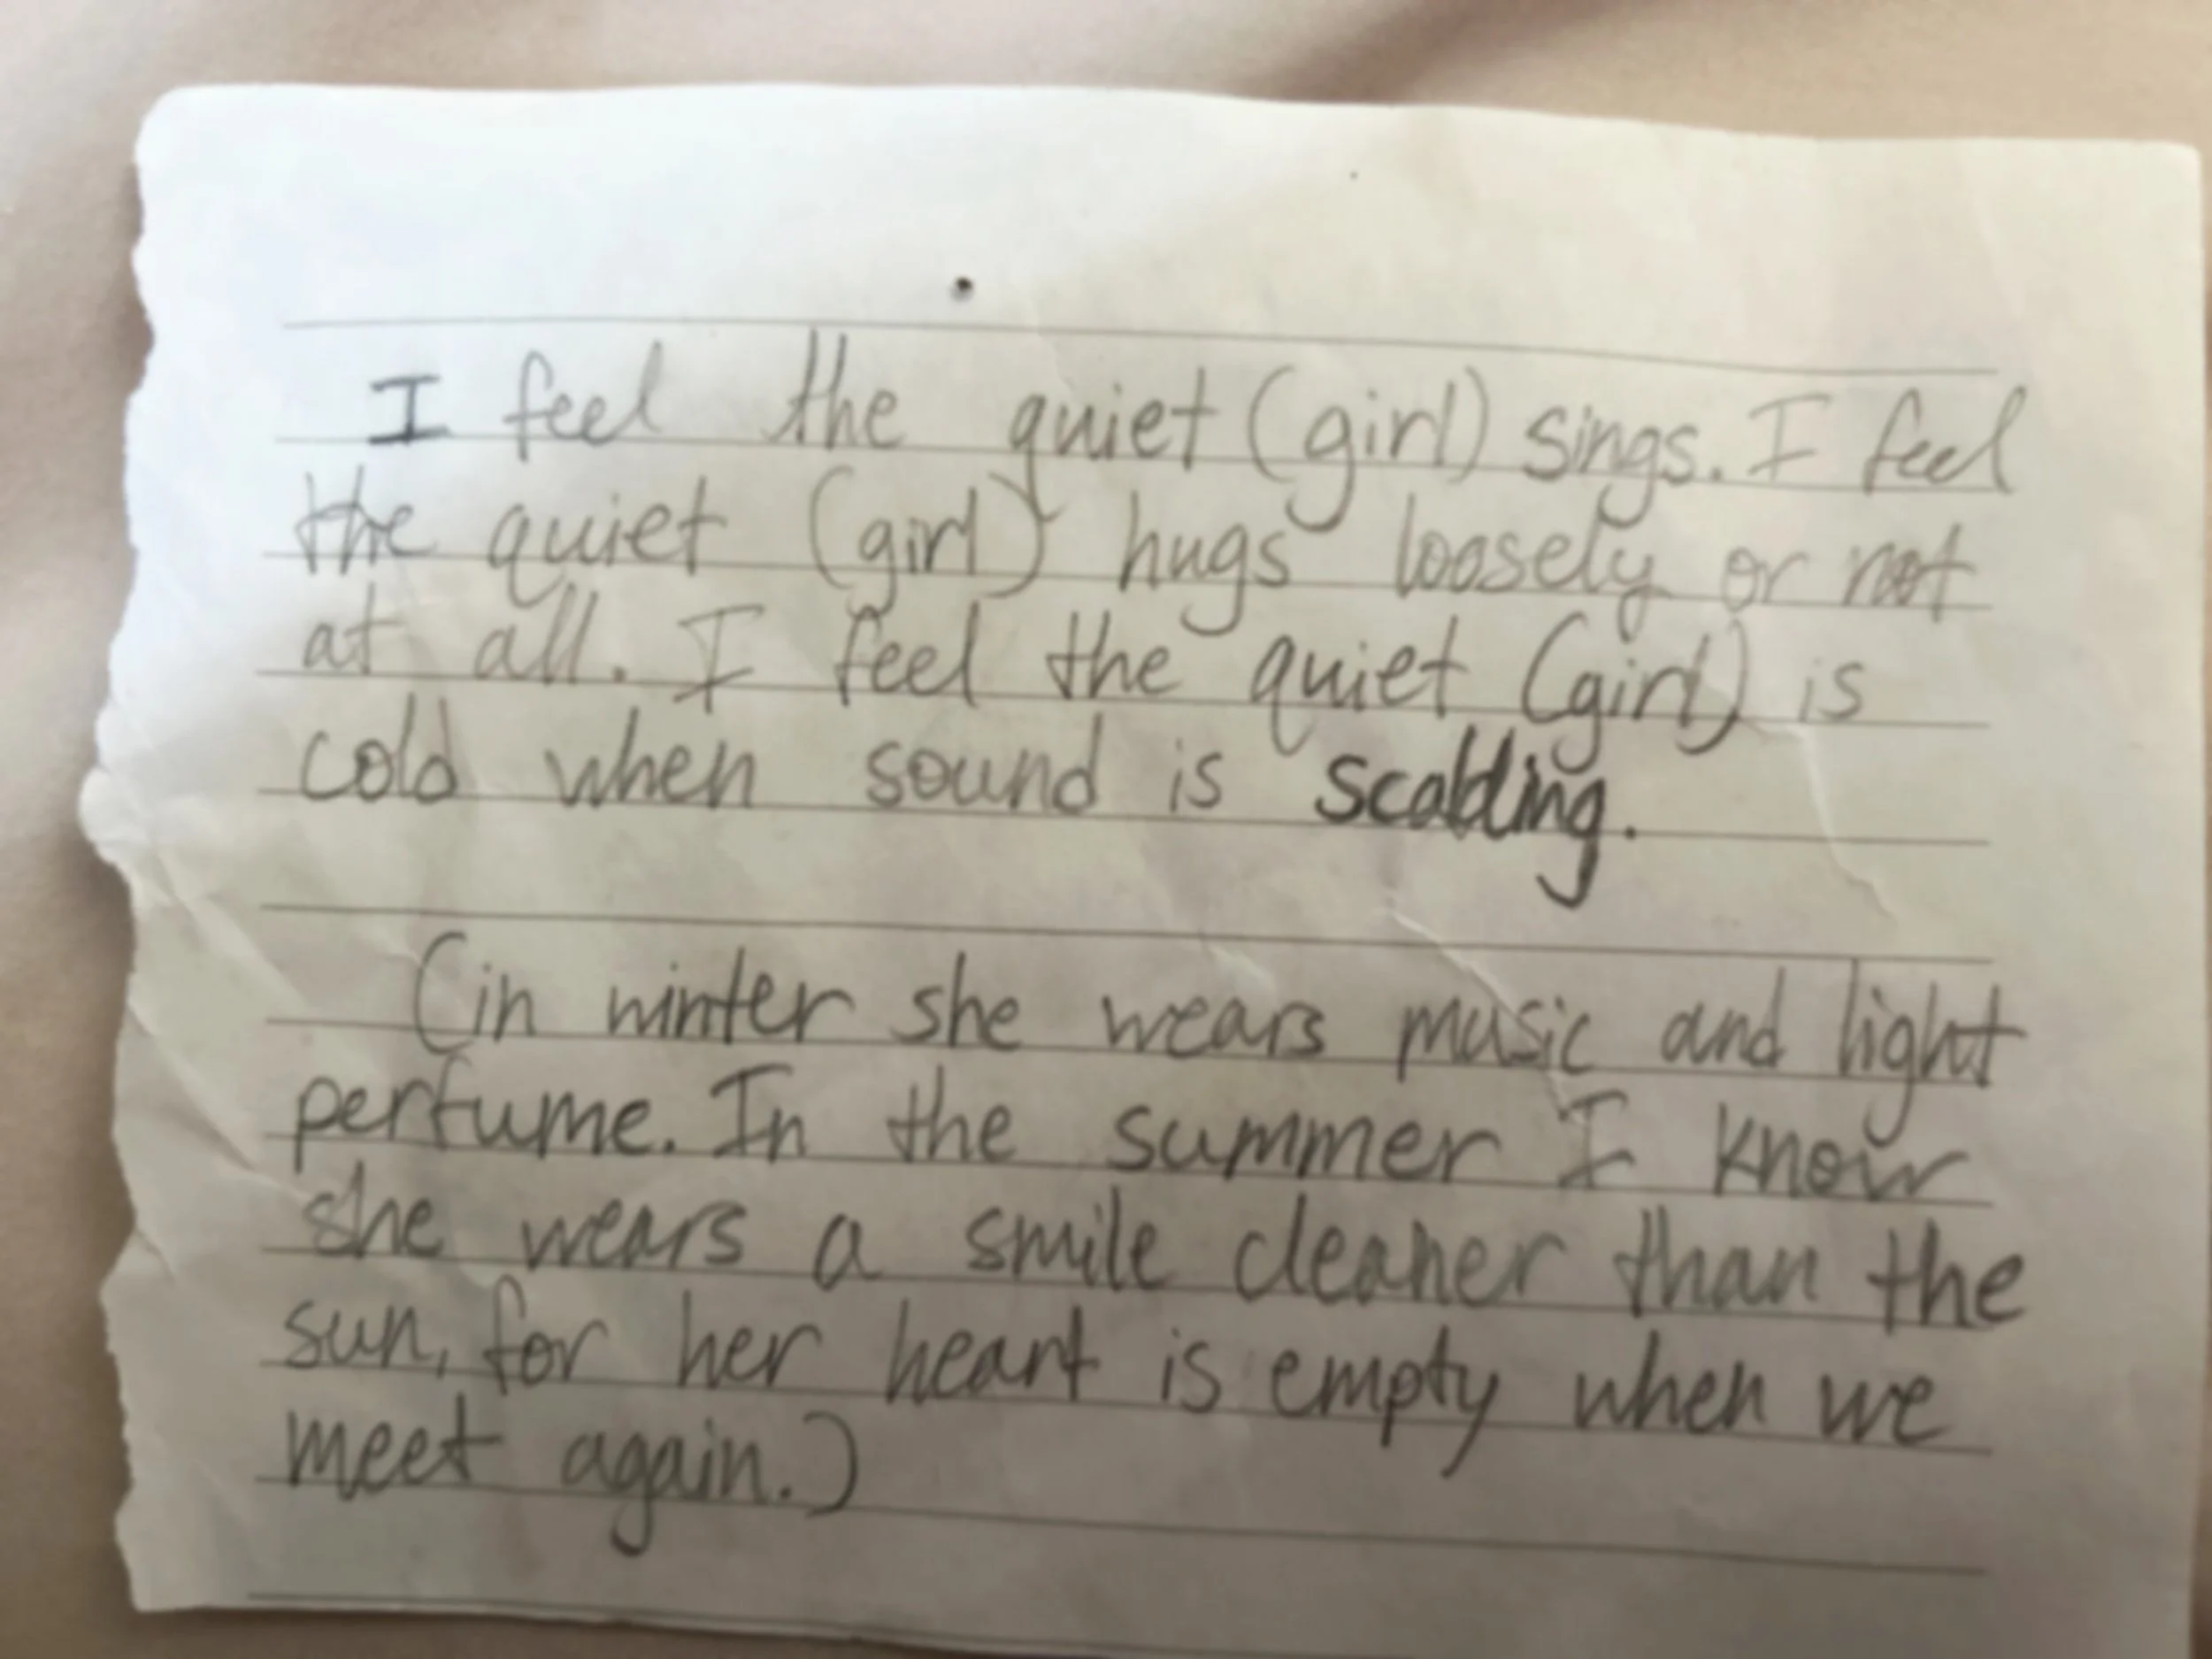 I feel the quiet (girl) sings. I feel
the quiet (girl) hugs loosely or not
at all. I feel the quiet (girl) is
cold when sound is scalding.
(in winter she wears music and light
perfume. In the summer I know
she wears a smile cleaner than the
sun, for her heart is empty when we
meet again.)